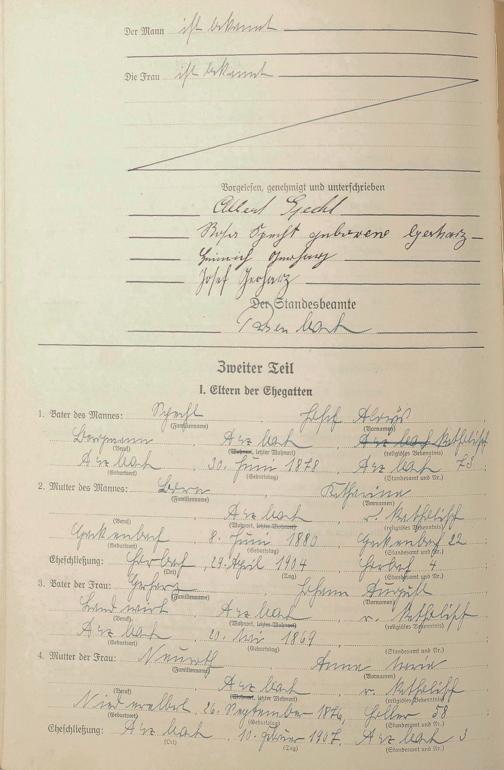 Der Mann ist bekannt
Die Frau ist bekannt
Vorgelesen, genehmigt und unterschrieben
Albert Specht
Rosa Specht geborene Gerharz
Heinrich Gerharz
Josef Gerharz
Der Standesbeamte
Zweiter Teil
I. Eltern der Ehegatten
1. Vater des Mannes: Specht Josef Aloys
(Familienname) (Vornamen)
Bergmann Arzbach Arzbach katholisch
(Beruf) (Wohnort, letzter Wohnort) (religiöses Bekenntnis)
Arzbach 30. Juni 1878 Arzbach 73
(Geburtsort) (Geburtstag) (Standesamt und Nr.)
2. Mutter des Mannes: Katharina
(Familienname) (Vornamen)
Arzbach r. katholisch
(Beruf) (Wohnort, letzter Wohnort) (religiöses Bekenntnis)
Gackenbach 8. Juni 1880 Gackenbach 22
(Geburtsort) (Geburtstag) (Standesamt und Nr.)
Eheschließung: Horbach, 29. April 1904 Horbach 4
(Ort) (Tag) (Standesamt und Nr.)
3. Vater der Frau: Gerharz Johann August
(Familienname) (Vornamen)
Landwirt Arzbach r. katholisch
(Beruf) (Wohnort, letzter Wohnort) (religiöses Bekenntnis)
Arzbach 20. Mai 1869
(Geburtsort) (Geburtstag) (Standesamt und Nr.)
4. Mutter der Frau: Neuroth Anna Maria
(Familienname) (Vornamen)
Arzbach r. katholisch
(Beruf) (Wohnort, letzter Wohnort) (religiöses Bekenntnis)
Niederelbert 26. September 1876, Holler 58
(Geburtsort) (Geburtstag) (Standesamt und Nr.)
Eheschließung: Arzbach 1907. Arzbach 3
(Ort) (Tag) (Standesamt und Nr.)